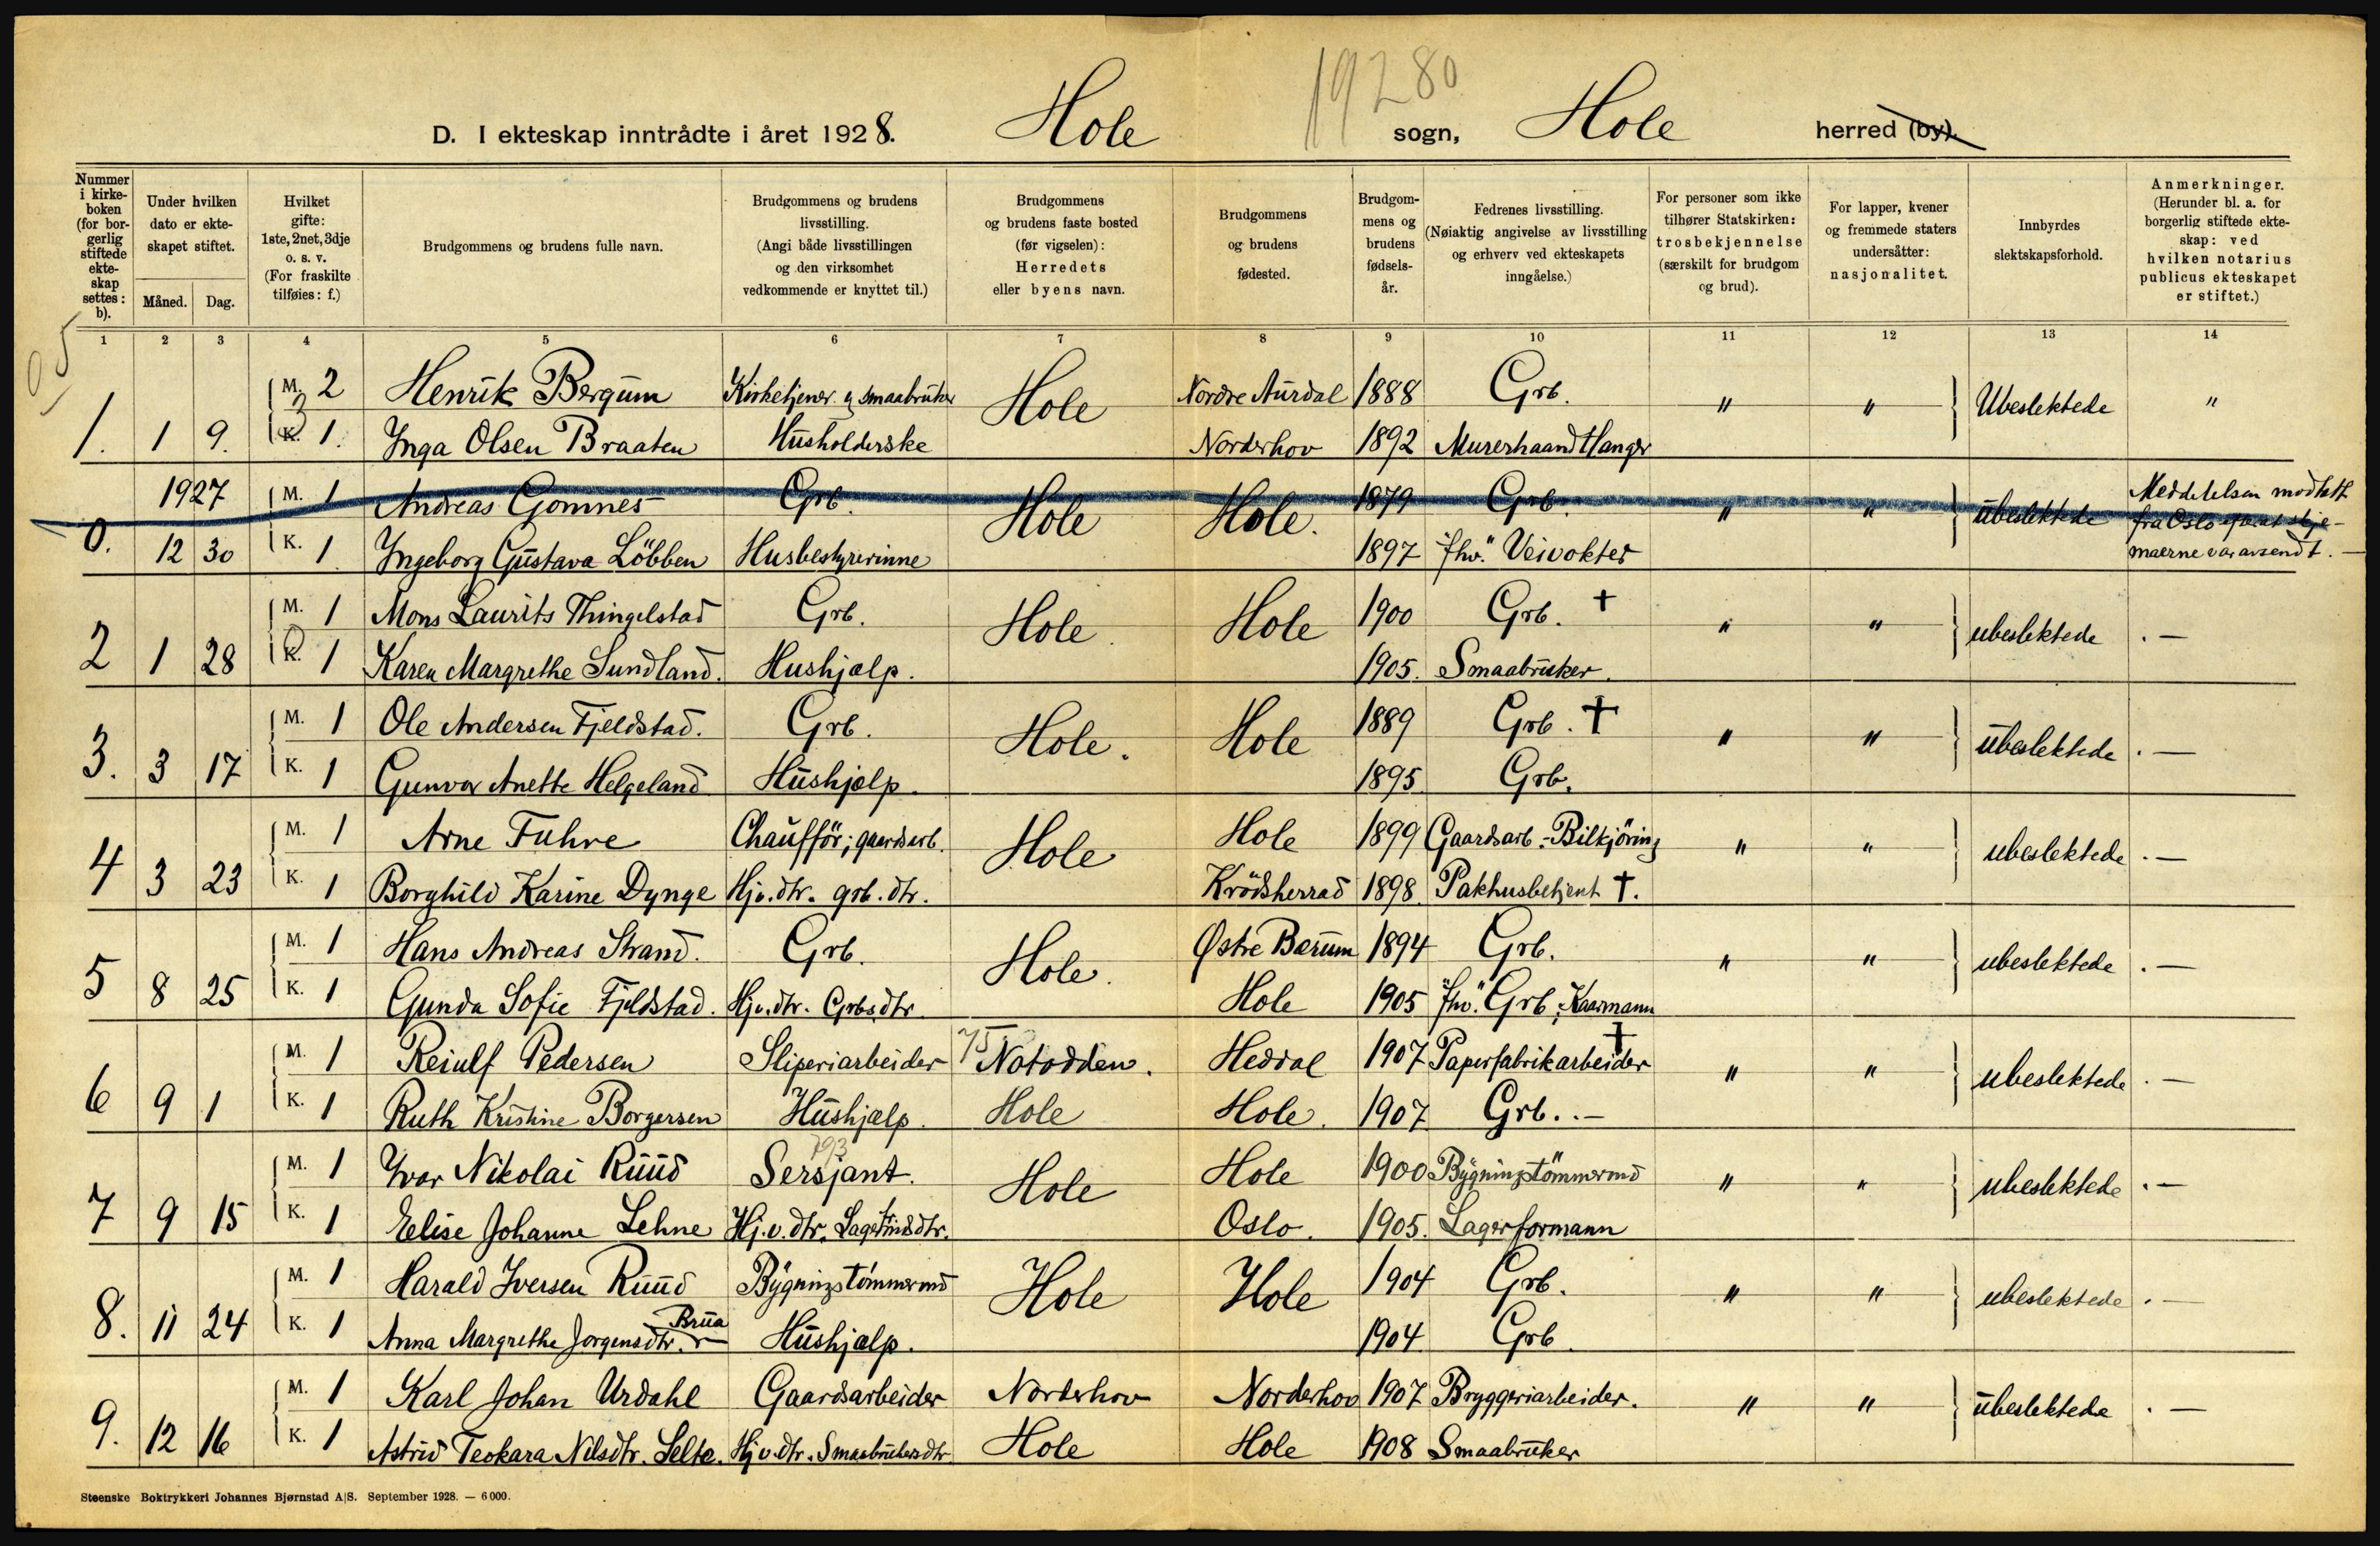 19280
D. I ekteskap inntrådte i året 1928. Hole sogn, Hole herred (by).
Nummer i kirke- boken (for bor- gerlig stiftede ekte- skap settes: b).
Under hvilken dato er ekte- skapet stiftet.
Måned. Dag.
Hvilket gifte: 1ste, 2net, 3dje o. s. v. (For fraskilte tilføies: f.)
Brudgommens og brudens fulle navn.
Brudgommens og brudens livsstilling. (Angi både livsstillingen og den virksomhet vedkommende er knyttet til.)
Brudgommens og brudens faste bosted (før vigselen): Herredets eller byens navn.
Brudgommens og brudens fødested.
Brudgom- mens og brudens fødsels- år.
Fedrenes livsstilling. (Nøiaktig angivelse av livsstilling og erhverv ved ekteskapets inngåelse.)
For personer som ikke tilhører Statskirken: trosbekjennelse (særskilt for brudgom og brud).
For lapper, kvener og fremmede staters undersåtter: nasjonalitet.
Innbyrdes slektskapsforhold.
Anmerkninger. (Herunder bl. a. for borgerlig stiftede ekte- skap: ved hvilken notarius publicus ekteskapet er stiftet.)
1 2 3 4 5 6 7 8 9 10 11 12 13 14
M. 2 Henrik Bergum Kirketjener og smaabruker Hole Nordre Aurdal 1888 Grb. " " Ubeslektede "
1. 1 9. K. 1. Inga Olsen Braaten Husholderske Norderhov 1892 Murerhaandtlanger
1927 M. 1 Andreas Gomnes Grb. Hole Hole. 1879 Grb. " " ubeslektede Meddelelsen modtatt fra Oslo efter at skje- maerne var avsendt. —
0. 12 30 K. 1 Ingeborg Gustava Löbben Husbestyrerinne 1897 "fhv." Veivokter
M. 1 Mons Laurits Thingelstad Grb. Hole Hole 1900 Grb. † " " ubeslektede . —
2 1 28 K. 1 Karen Margrethe Sundland. Hushjælp. 1905. Smaabruker.
M. 1 Ole Andersen Fjeldstad. Grb. Hole. Hole 1889 Grb. † " " ubeslektede . —
3. 3 17 K. 1 Gunvor Anette Helgeland Hushjælp. 1895 Grb.
M. 1 Arne Fuhre Chaufför; gaardsarb. Hole Hole 1899 Gaardsarb.-Bilkjöring " " ubeslektede . —
4 3 23 K. 1 Borghild Karine Dynge Hjv. dtr. grb. dtr. Krödsherrad 1898 Pakhusbetjent †.
M. 1 Hans Andreas Strand. Grb. Hole. Østre Bærum 1894 Grb. " " ubeslektede . —
5 8 25 K. 1 Gunda Sofie Fjeldstad. Hjv. dtr. Grbs dtr. Hole 1905 "fhv." Grb; Kaarmann
M. 1 Reiulf Pedersen Sliperiarbeider Notodden. Heddal 1907 Papirfabrikarbeider † " " ubeslektede . —
6 9 1 K. 1 Ruth Kristine Borgersen Hushjælp. Hole Hole. 1907 Grb. . —
M. 1 Ivar Nikolai Ruud Sersjant. Hole Hole 1900 Bygningstömmermd " " ubeslektede . —
7 9 15 K. 1 Elise Johanne Lehne Hj.v. dtr. Lagerfmds dtr. Oslo. 1905. Lagerformann
M. 1 Harald Iversen Ruud Bygningstömmermd Hole Hole 1904 Grb. " " ubeslektede . —
8. 11 24 K. 1 Anna Margrethe Jorgensdtr. Brua Hushjælp. 1904 Grb.
M. 1 Karl Johan Urdahl Gaardsarbeider Norderhov Norderhov 1907 Bryggeriarbeider. " " ubeslektede . —
9. 12 16 K. 1 Astrid Teokara Nilsdtr. Selte. Hjv. dtr. Smaabrukersdtr Hole Hole 1908 Smaabruker
Steenske Boktrykkeri Johannes Bjørnstad A|S. September 1928. — 6000.